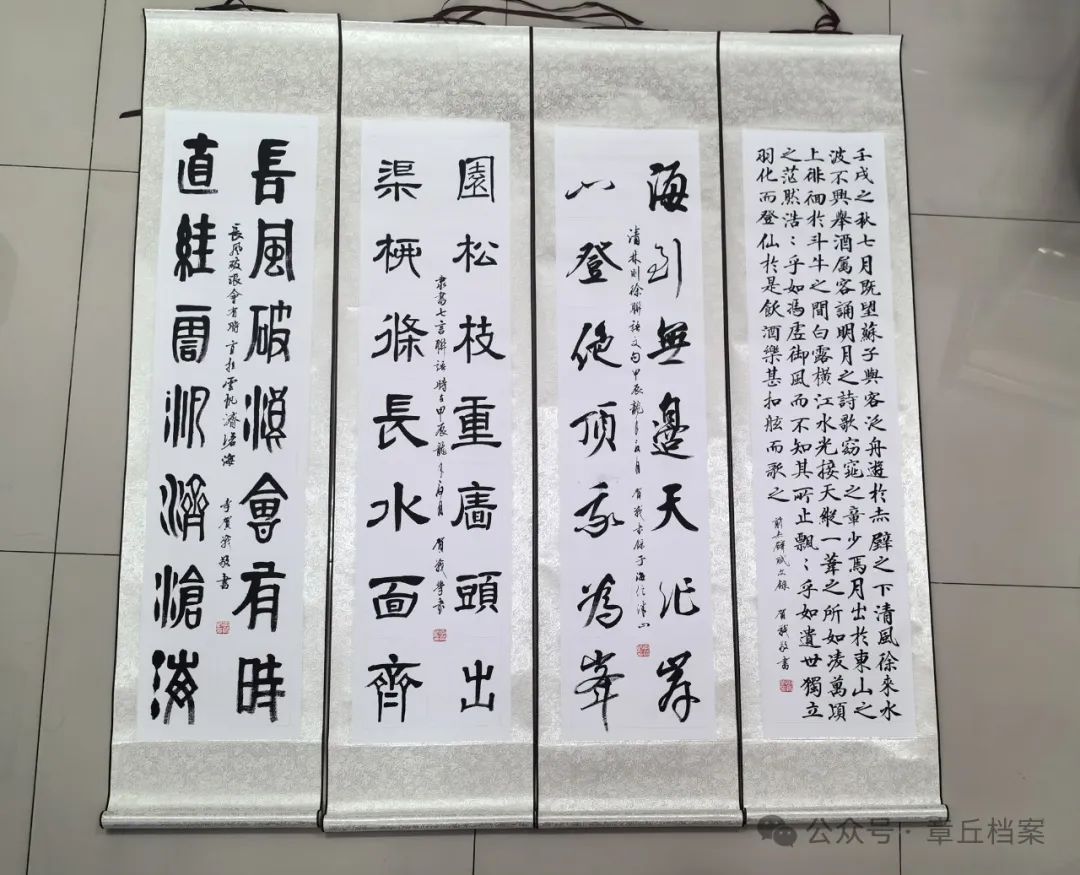 壬戌之秋七月既望蘇子與客泛舟遊於赤壁之下清風徐來水
波不興舉酒属客誦明月之詩歌窈窕之章少焉月出於東山之
上徘徊於斗牛之間白露橫江水光接天縱一葦之所如凌萬頃
之茫然浩:乎如馮虛御風而不知其所止飄:乎如遺世獨立
羽化而登仙於是飲酒樂甚扣舷而歌之
前赤壁賦 賀戰敬書
海到無邊天作岸
清林則徐聯語文句甲辰龍年 賀戰書錄于
山登絕頂我為峯
園松枝重牆頭出
隸書七言聯語時在甲辰龍年 賀戰學書
渠柳條長水面齊
長風破浪會有時
長風破浪會有時 直挂雲帆濟滄海 李賀戰敬書
直挂雲帆濟滄海
公众号·章丘档案